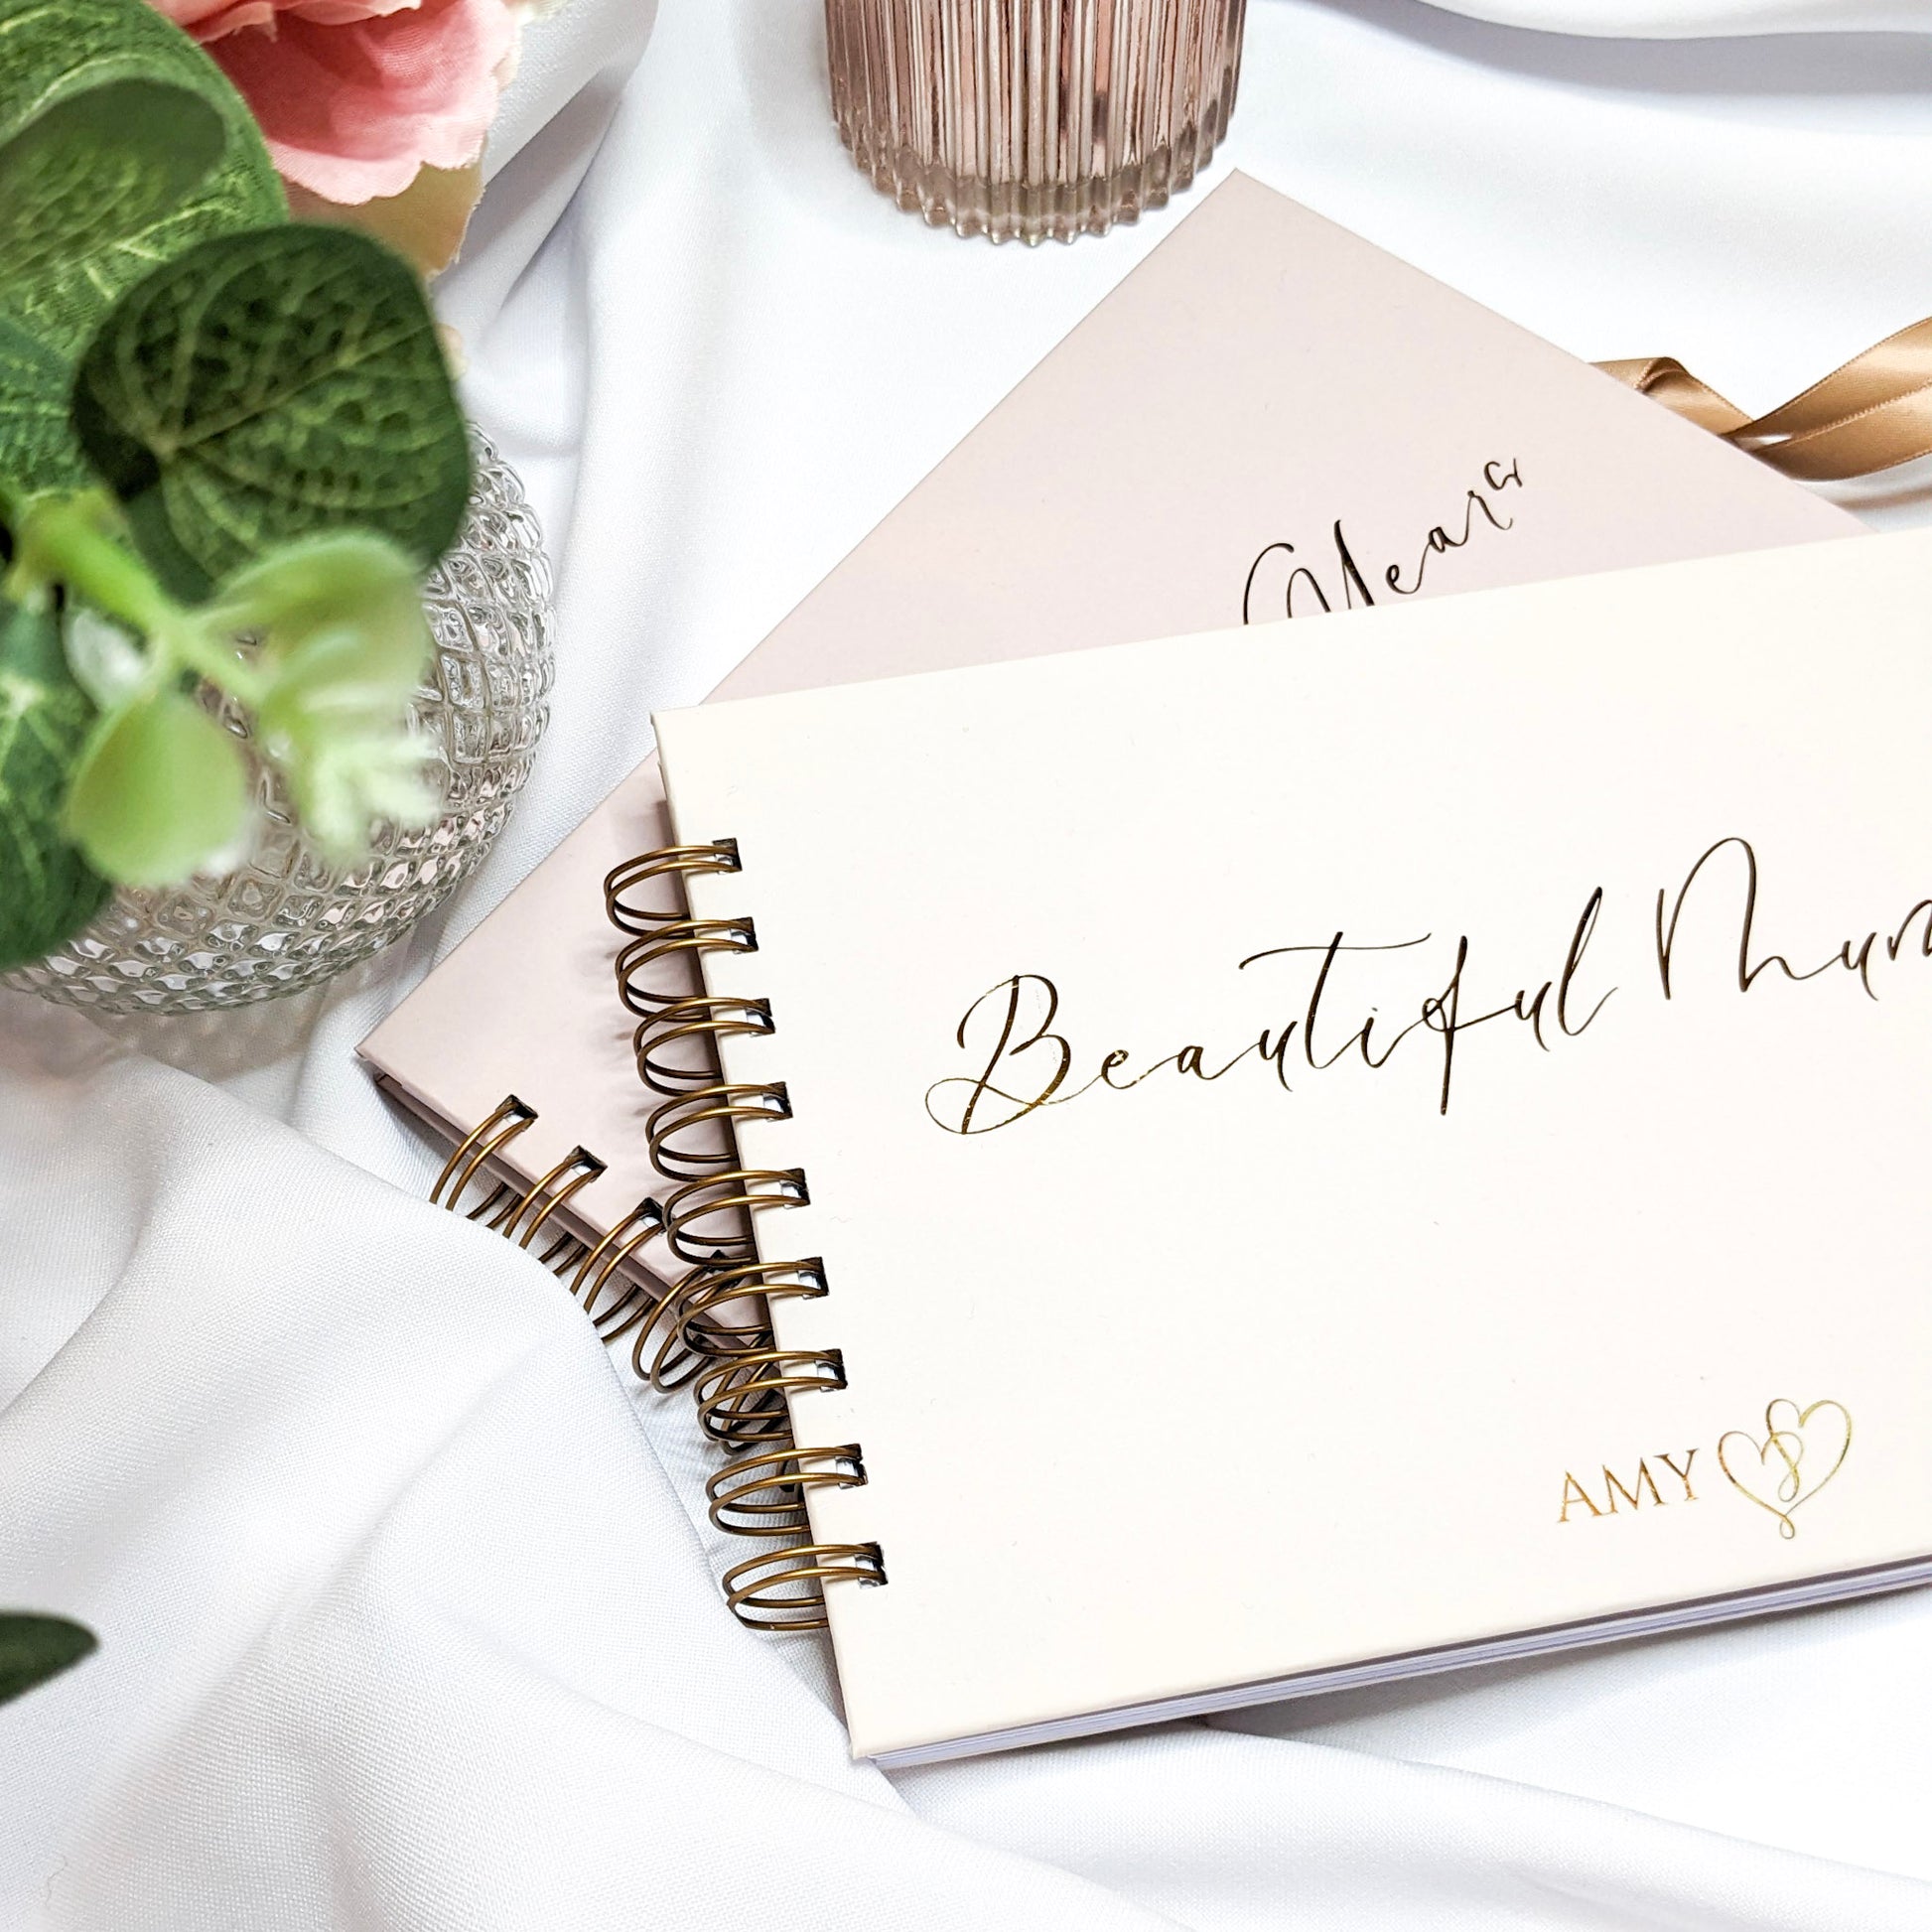 Year
Beautiful Mum
AMY